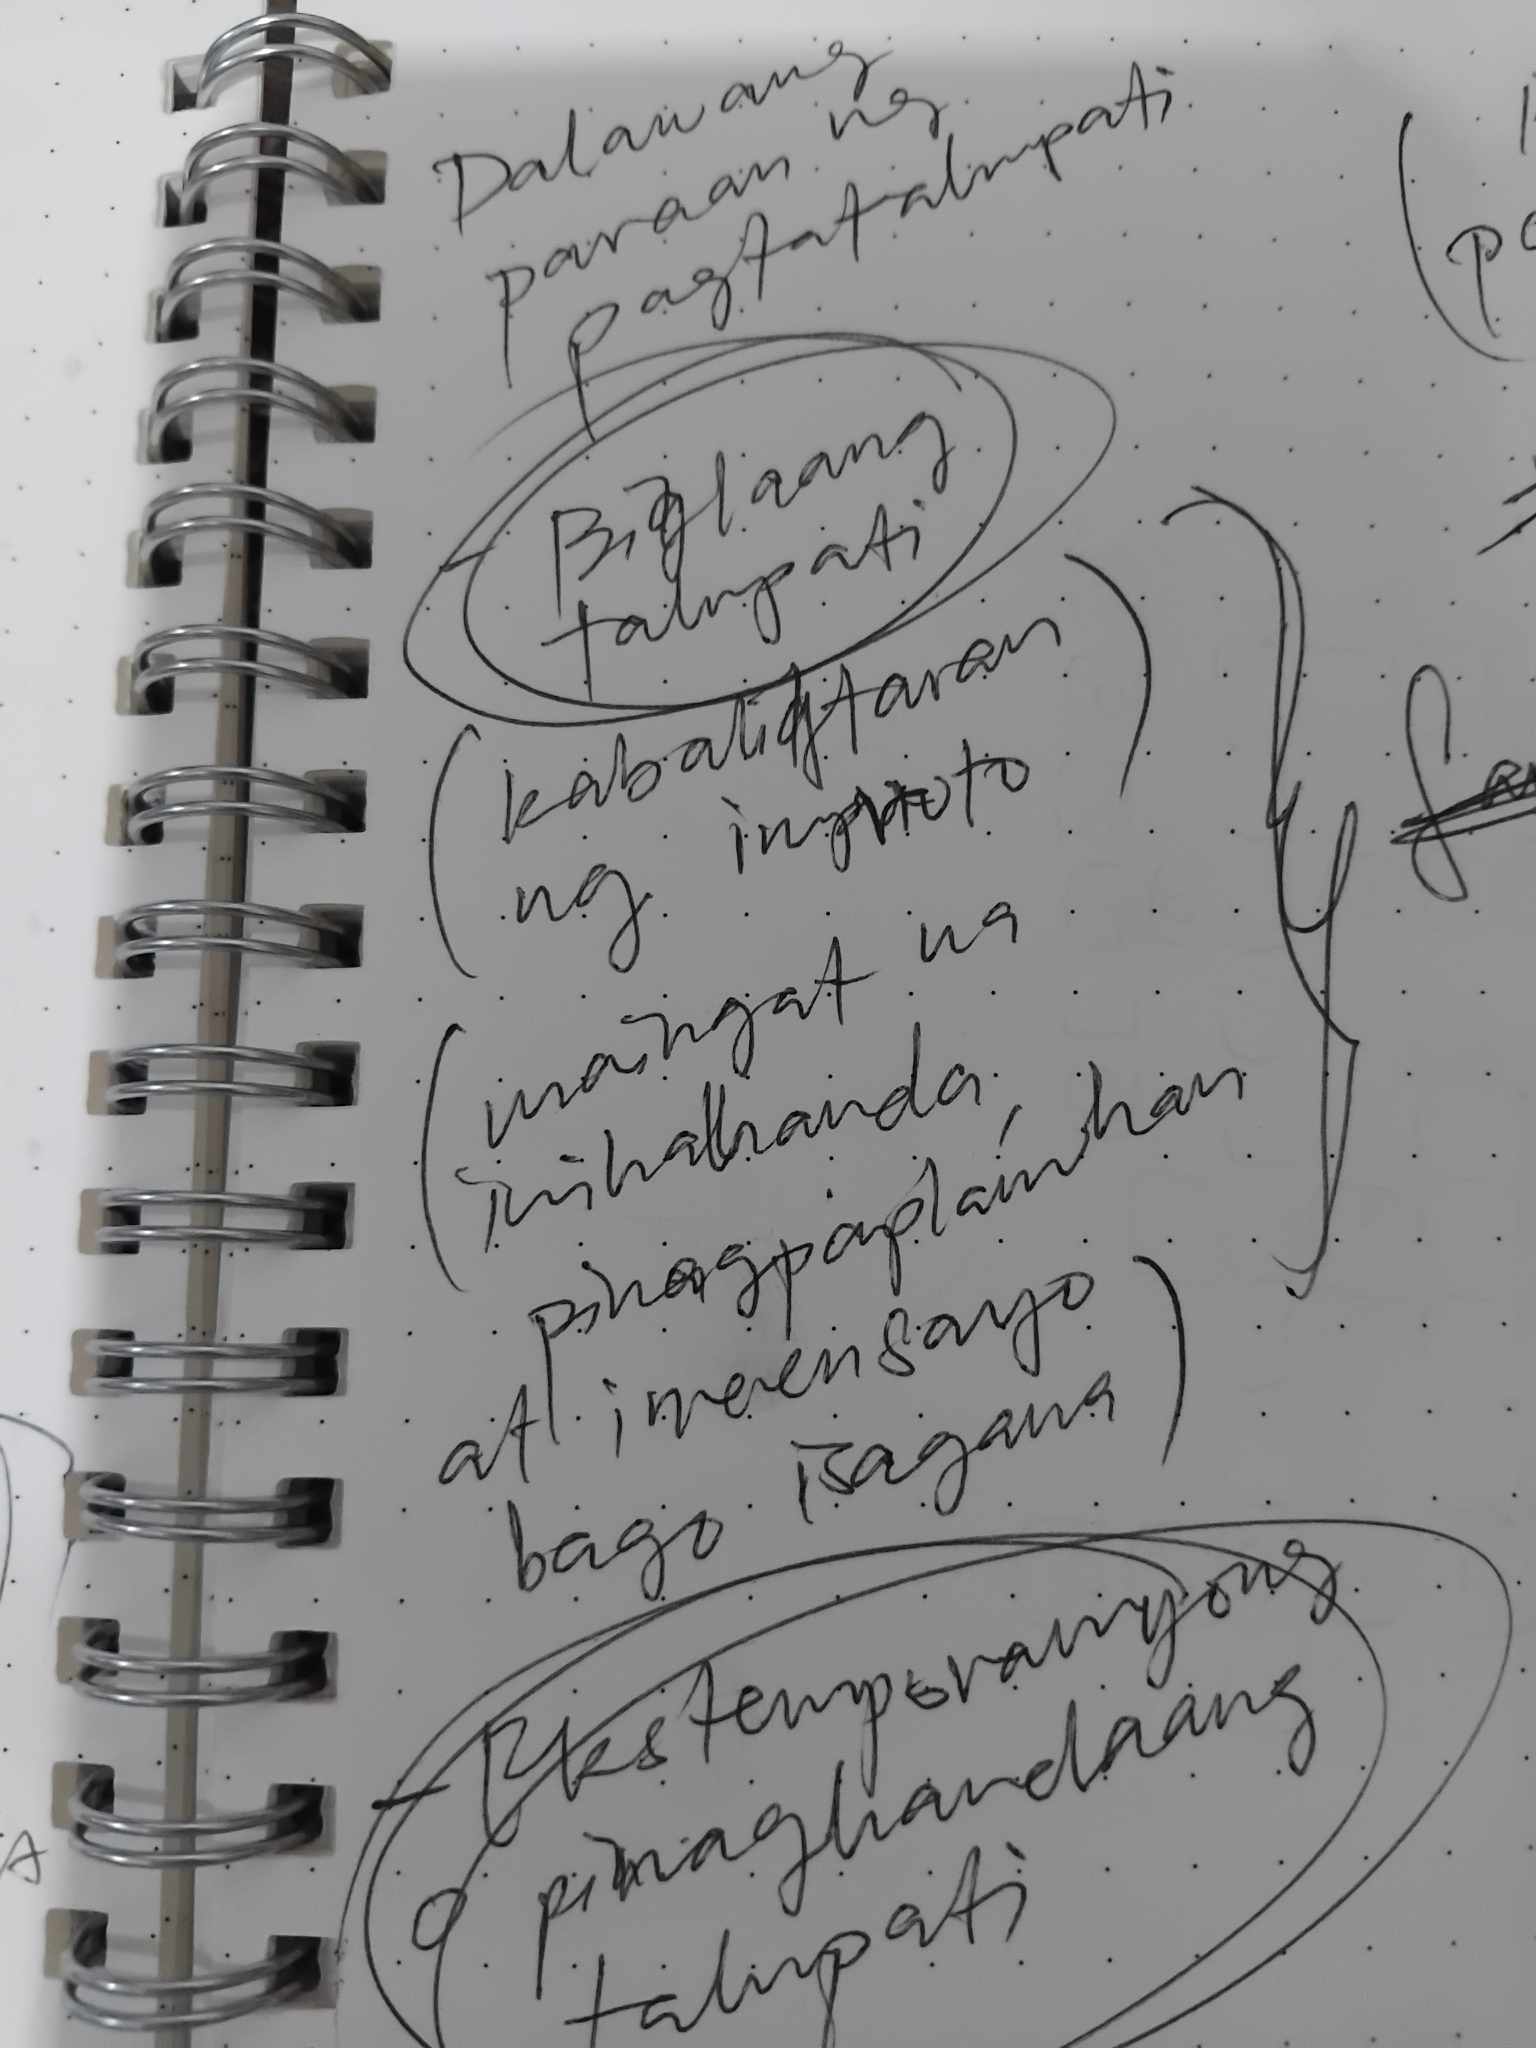 Dalawang
paraan ng
pagtatalumpati
- Biglaang
talumpati
(kabaligtaran
ng impromto)
(maingat na
inihahanda,
pinagpaplanuhan
at ineensayo
bago isagawa)
- Ekstemporanyong
o pinaghandaang
talumpati